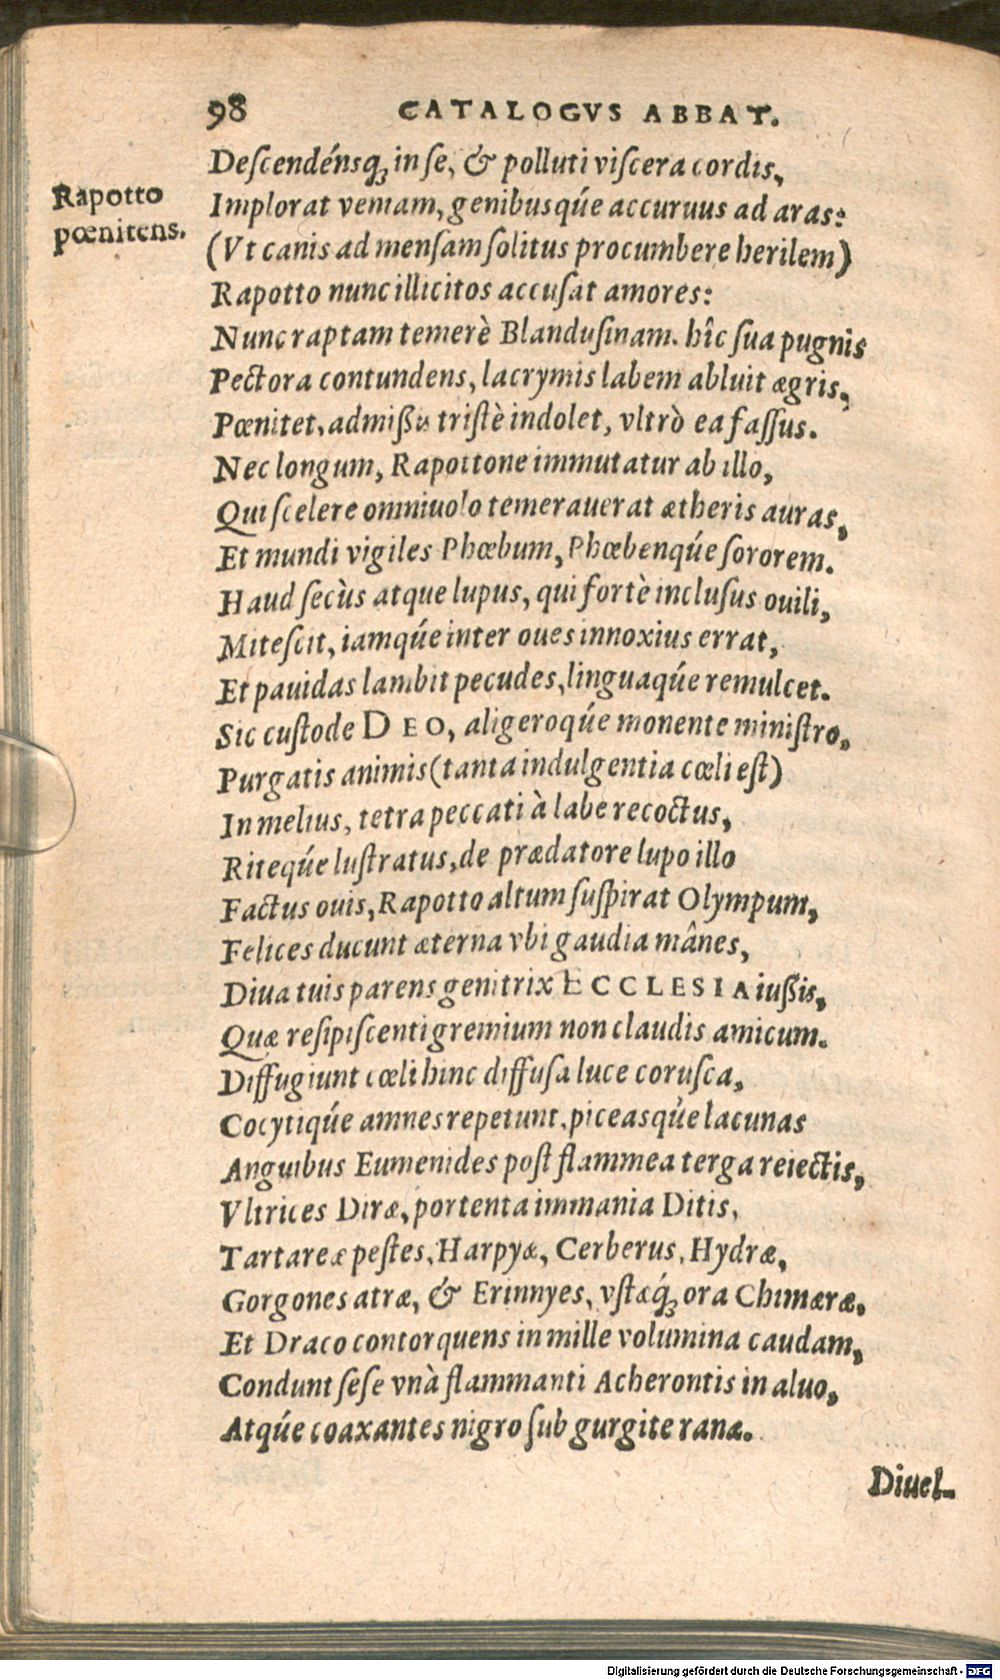 98 CATALOGVS ABBAT.
Deſcendénsq́ꝫ in ſe, & polluti viſcera cordis,
Rapotto
pœnitens.
Implorat veniam, genibusqúe accuruus ad aras:
(Vt canis ad menſam ſolitus procumbere herilem)
Rapotto nunc illicitos accuſat amores:
Nunc raptam temerè Blanduſinam. hîc ſua pugnis
Pectora contundens, lacrymis labem abluit ægris,
Pœnitet, admißis triſtè indolet, vltrò ea faſſus.
Nec longum, Rapottone immutatur ab illo,
Qui ſcelere omniuolo temerauerat ætheris auras,
Et mundi vigiles Phœbum, Phœbenqúe ſororem.
Haud ſecùs atque lupus, qui fortè incluſus ouili,
Miteſcit, iamqúe inter oues innoxius errat,
Et pauidas lambit pecudes, linguaqúe remulcet.
Sic cuſtode DEO, aligeroqúe monente miniſtro,
Purgatis animis (tanta indulgentia cœli eſt)
In melius, tetra peccati à labe recoctus,
Riteqúe luſtratus, de prædatore lupo illo
Factus ouis, Rapotto altum ſuſpirat Olympum,
Felices ducunt æterna vbi gaudia mânes,
Diua tuis parens genitrix ECCLESIA iußis,
Quæ reſipiſcenti gremium non claudis amicum.
Diffugiunt cœli hinc diffuſa luce coruſca,
Cocytiqúe amnes repetunt, piceasqúe lacunas
Anguibus Eumenides poſt flammea terga reiectis,
Vltrices Diræ, portenta immania Ditis,
Tartareæ peſtes, Harpyæ, Cerberus, Hydræ,
Gorgones atræ, & Erinnyes, vſtæq́ꝫ ora Chimæræ,
Et Draco contorquens in mille volumina caudam,
Condunt ſeſe vnà flammanti Acherontis in aluo,
Atqúe coaxantes nigro ſub gurgite ranæ.
Diuel-
Digitalisierung gefördert durch die Deutsche Forschungsgemeinschaft - DFG